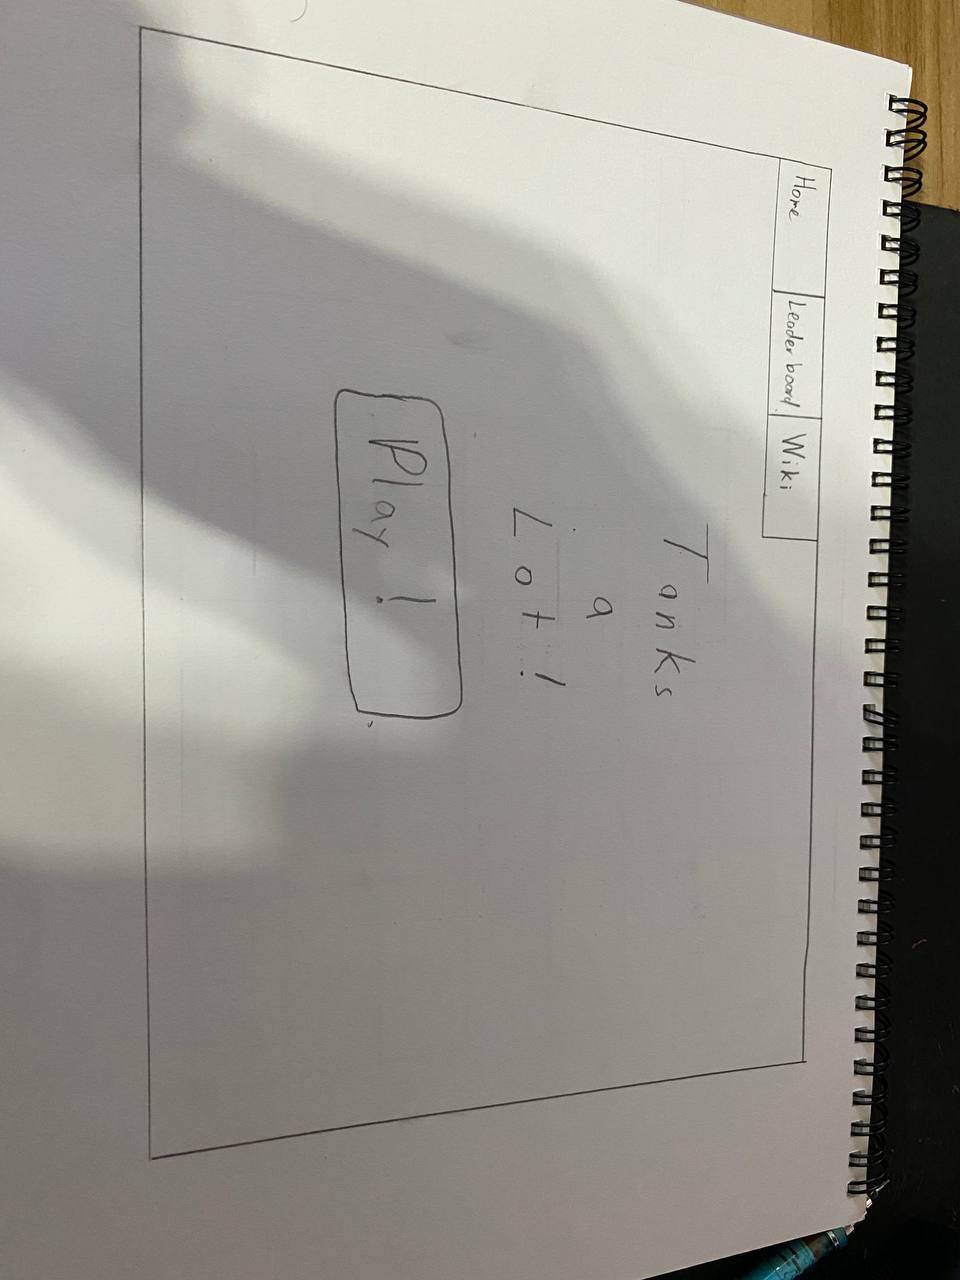 Home Leaderboard Wiki
Tanks
a
Lot!
Play!